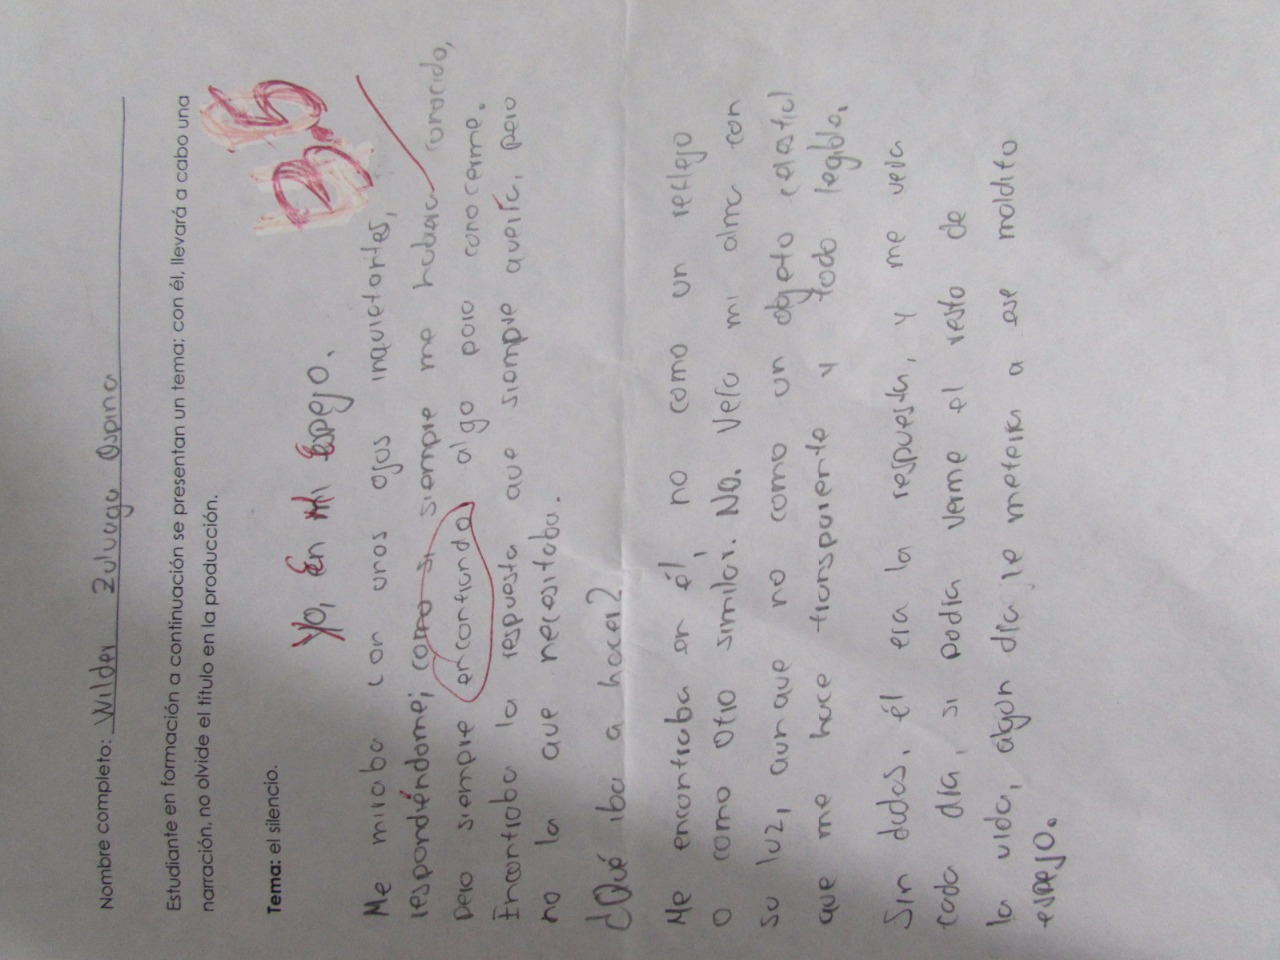 Nombre completo: Wilder Zuluaga Ospina
Estudiante en formación a continuación se presentan un tema; con él, llevará a cabo una
narración, no olvide el título en la producción.
Tema: el silencio.
3.5
Yo, En mi Espejo.
Me miraba con unos ojos inquietantes,
respondiéndome; como si siempre me hubiera conocido,
pero siempre encontrando algo para conocerme.
Encontraba la respuesta que siempre quería, pero
no la que necesitaba.
¿Qué iba a hacer?
Me encontraba en él, no como un reflejo
o como otro similar. No. Veía mi alma con
su luz, aunque no como un objeto celestial
que me hace transparente y todo legible.
Sin dudas, él era la respuesta, y me veía
cada día, si podía verme el resto de
la vida, algún día le metería a ese maldito
espejo.